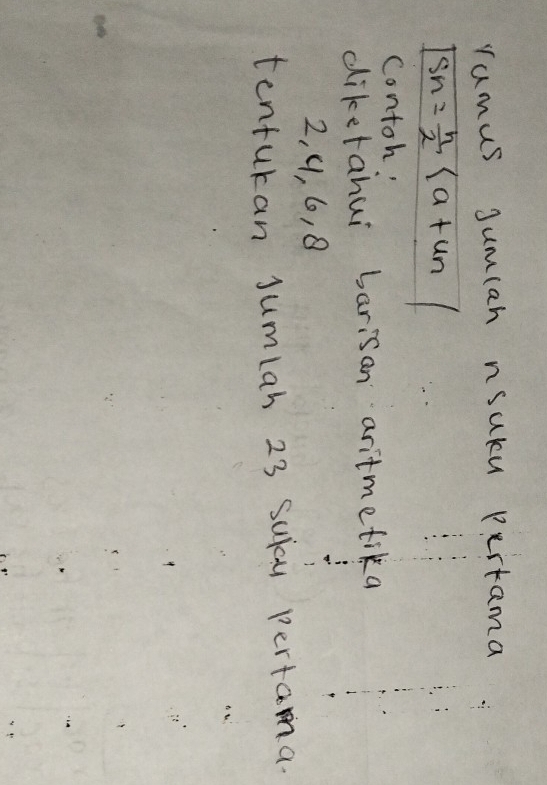 rumus Jumlah n suku pertama
Sn = n/2 (a + un)
Contoh:
diketahui barisan aritmetika
2, 4, 6, 8
tentukan Jumlah 23 suku pertama.